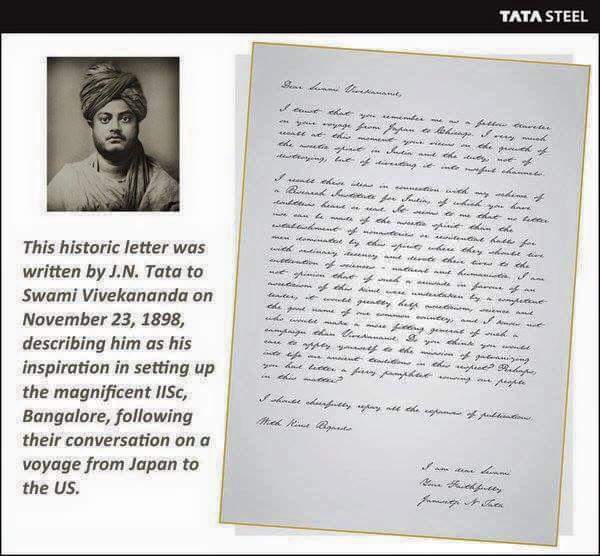 TATA STEEL
This historic letter was
written by J.N. Tata to
Swami Vivekananda on
November 23, 1898,
describing him as his
inspiration in setting up
the magnificent IISc,
Bangalore, following
their conversation on a
voyage from Japan to
the US.
Dear Swami Vivekanand,
I trust that you remember me as a fellow traveler
on your voyage from Japan to Chicago. I very much
recall at this moment your views on the growth of
the ascetic spirit in India and the duty, not of
destroying, but of diverting it into useful channels.
I recall these ideas in connection with my scheme of
a Research Institute for India, of which you have
doubtless heard or read. It seems to me that no better
use can be made of the ascetic spirit than the
establishment of monasteries or residential halls for
men dominated by this spirit, where they should live
with ordinary decency and devote their lives to the
cultivation of sciences - natural and humanistic. I am
opinion that such a crusade in favour of an
asceticism of this kind were undertaken by a competent
leader, it would greatly help asceticism, science and
the good name of our common country; and I know not
who would make a more fitting general of such a
campaign than Vivekananda. Do you think you would
care to apply yourself to the mission of galvanizing
into life our ancient traditions in this respect? Perhaps,
you had better a fiery pamphlet rousing our people
in this matter?
I should cheerfully repay all the expenses of publication.
With Kind Regards
I am dear Swami
Your Faithfully
Jamsetji N Tata